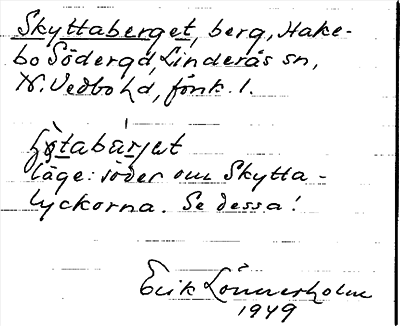 Skyttaberget, berg, Hake-
bo Södergd, Linderås sn,
N. Vedbo hd, fönk. l.
läge: söder om Skytta-
lyckorna. Se dessa!
Erik Lönnerholm
1949